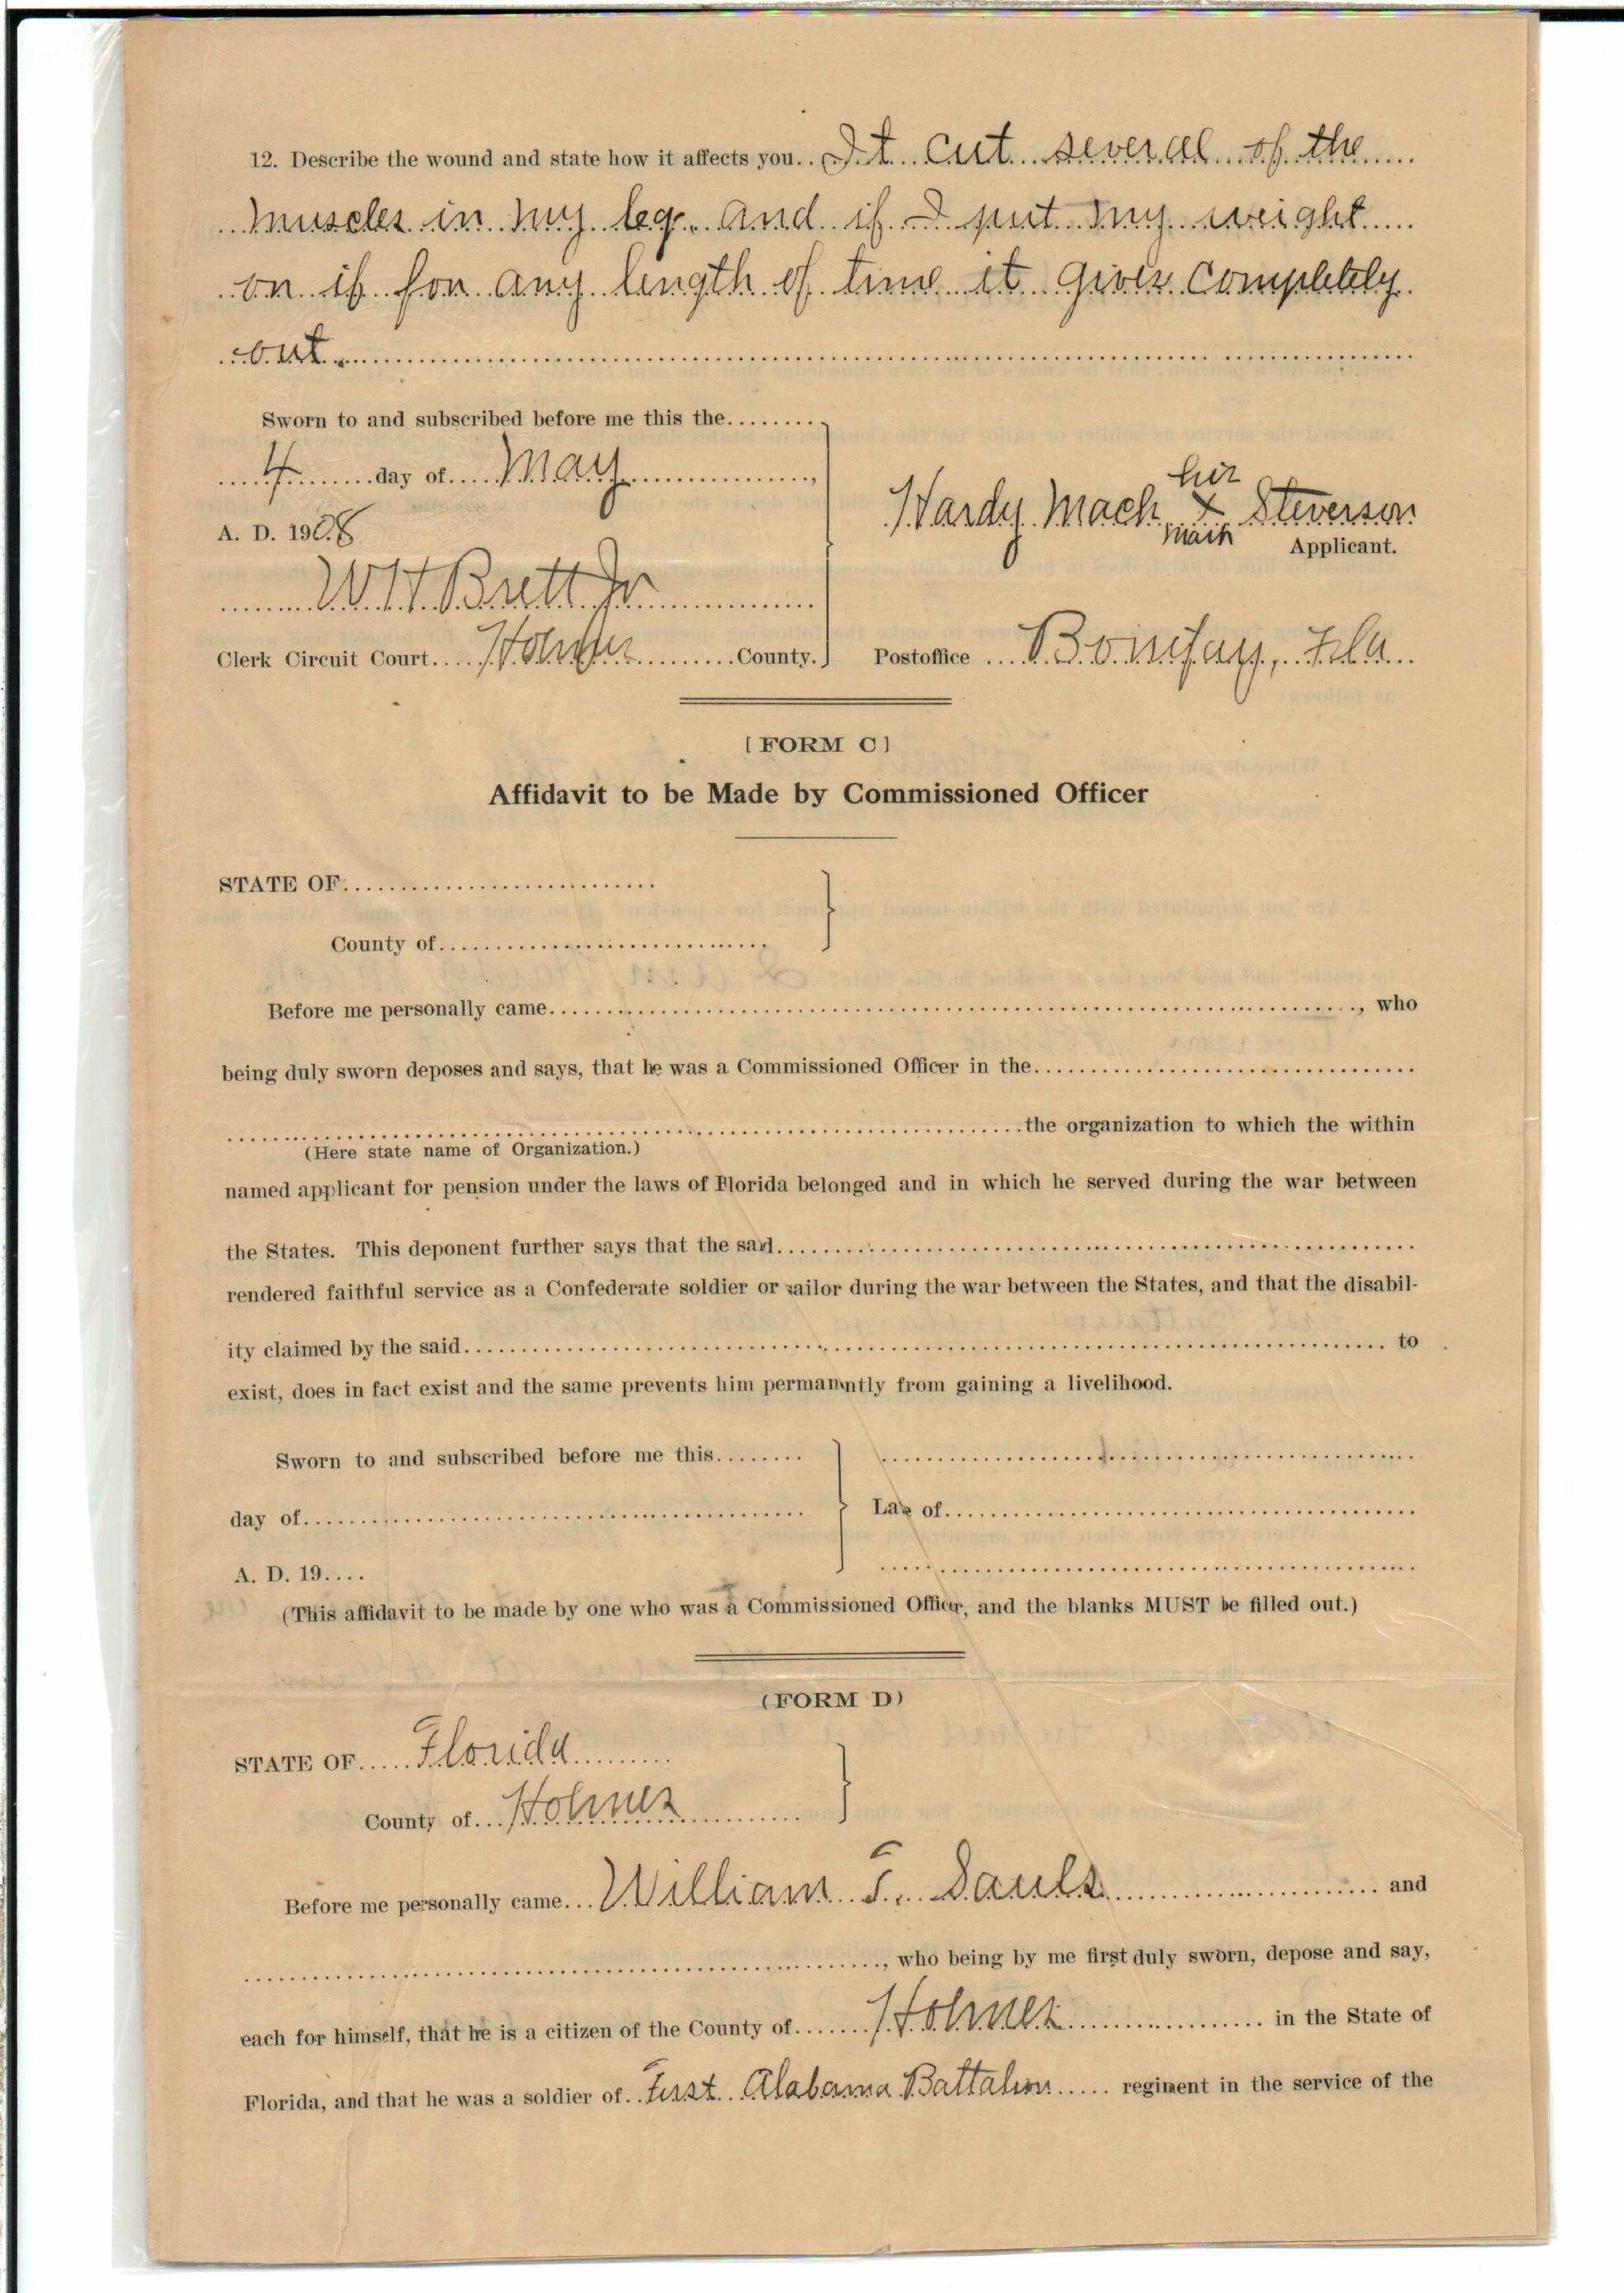 12. Describe the wound and state how it affects you. It cut several of the
muscles in my leg. and if I put my weight
on if for any length of time it gives completely
out.
Sworn to and subscribed before me this the
4 day of May
A. D. 1908
W H Brett Jr
Clerk Circuit Court Holmes County.
his
Hardy Mack x Steverson
mark
Applicant.
Postoffice Bonifay, Fla
[FORM C]
Affidavit to be Made by Commissioned Officer
STATE OF
County of
Before me personally came, who
being duly sworn deposes and says, that he was a Commissioned Officer in the
the organization to which the within
(Here state name of Organization.)
named applicant for pension under the laws of Florida belonged and in which he served during the war between
the States. This deponent further says that the said
rendered faithful service as a Confederate soldier or sailor during the war between the States, and that the disabil-
ity claimed by the said to
exist, does in fact exist and the same prevents him permanently from gaining a livelihood.
Sworn to and subscribed before me this
day of
A. D. 19
Late of
(This affidavit to be made by one who was a Commissioned Officer, and the blanks MUST be filled out.)
(FORM D)
STATE OF Florida
County of Holmes
Before me personally came William T. Sauls and
, who being by me first duly sworn, depose and say,
each for himself, that he is a citizen of the County of Holmes in the State of
Florida, and that he was a soldier of First Alabama Battalion regiment in the service of the